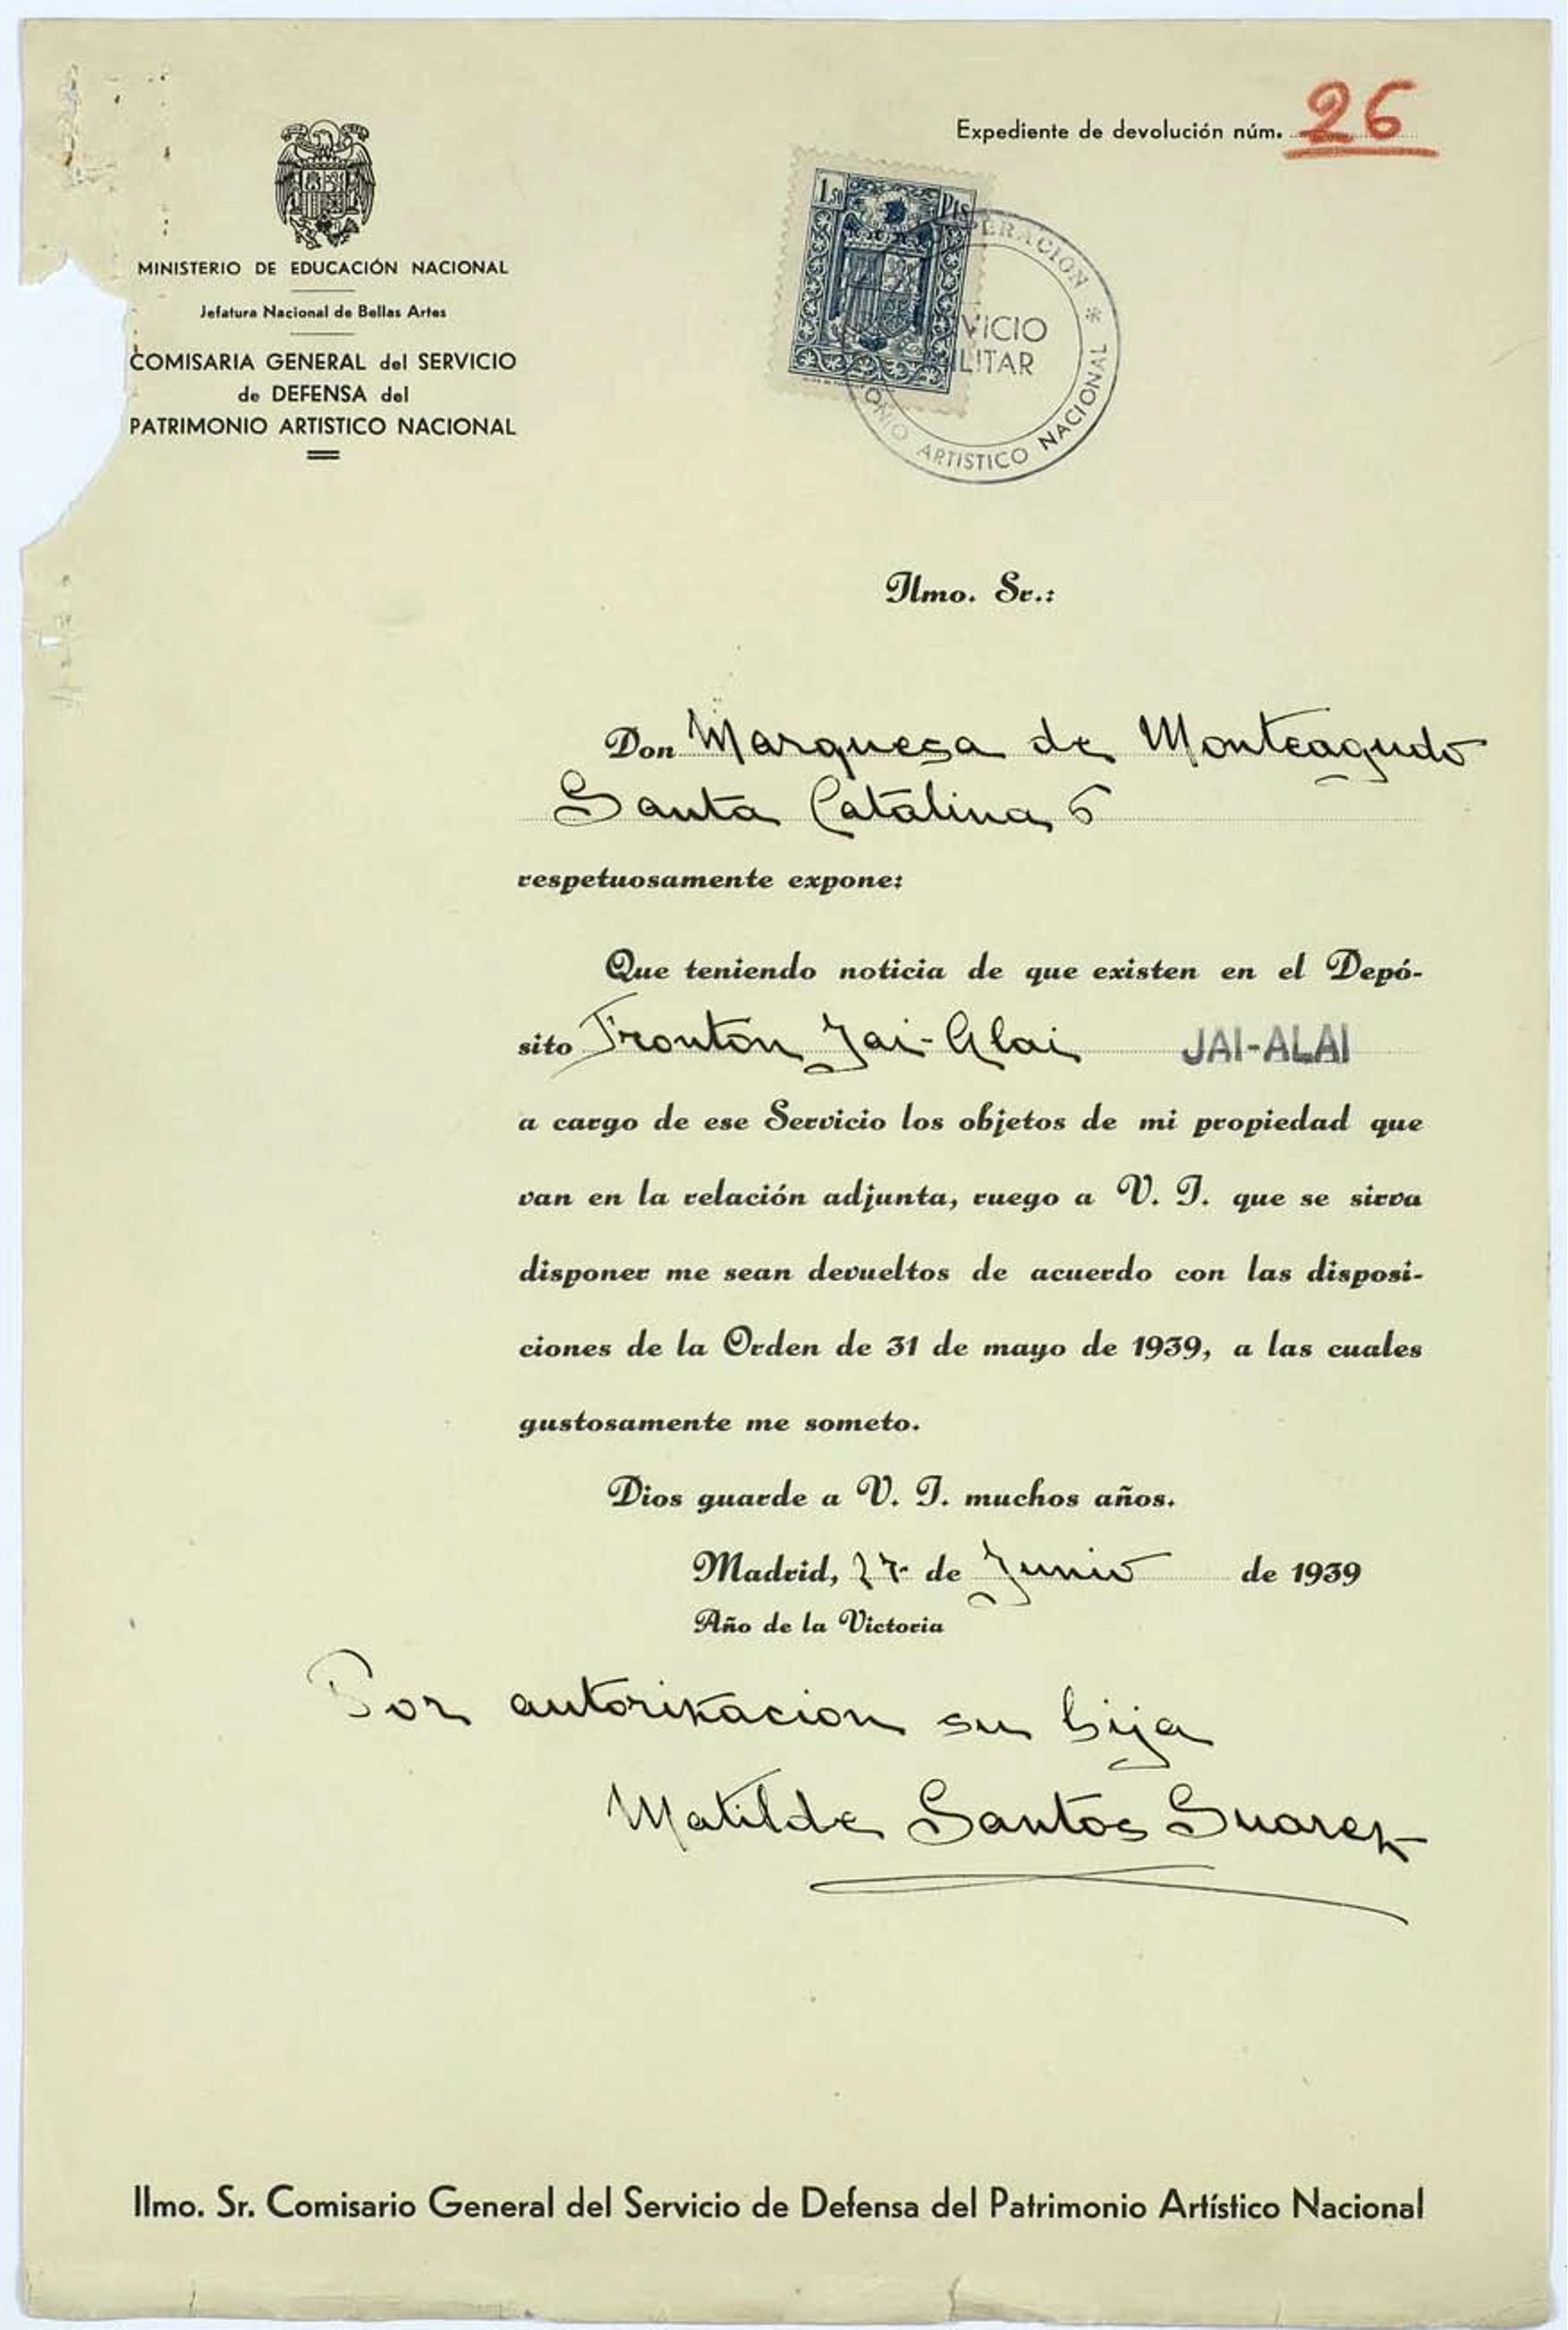 Expediente de devolución núm. 26
MINISTERIO DE EDUCACIÓN NACIONAL
Jefatura Nacional de Bellas Artes
COMISARIA GENERAL del SERVICIO
de DEFENSA del
PATRIMONIO ARTISTICO NACIONAL
1,50 PTS
ARTISTICO NACIONAL *
Ilmo. Sr.:
Don Marquesa de Monteagudo
Santa Catalina 6
respetuosamente expone:
Que teniendo noticia de que existen en el Depó-
sito Fronton Jai-Alai JAI-ALAI
a cargo de ese Servicio los objetos de mi propiedad que
van en la relación adjunta, ruego a V. I. que se sirva
disponer me sean devueltos de acuerdo con las disposi-
ciones de la Orden de 31 de mayo de 1939, a las cuales
gustosamente me someto.
Dios guarde a V. I. muchos años.
Madrid, 27 de Junio de 1939
Año de la Victoria
Por autorizacion su hija
Matilde Santos Suarez
Ilmo. Sr. Comisario General del Servicio de Defensa del Patrimonio Artístico Nacional